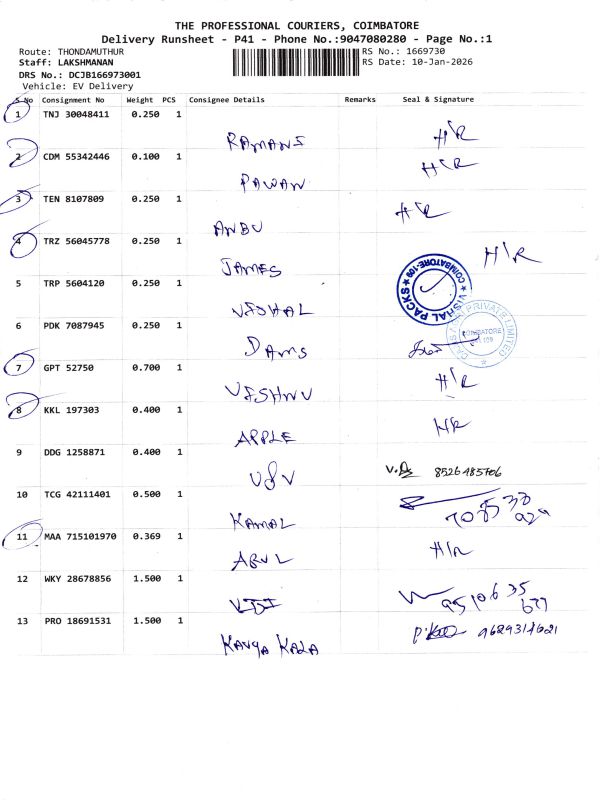 THE PROFESSIONAL COURIERS, COIMBATORE
Delivery Runsheet - P41 - Phone No.:9047080280 - Page No.:1
Route: THONDAMUTHUR RS No.: 1669730
Staff: LAKSHMANAN RS Date: 10-Jan-2026
DRS No.: DCJB166973001
Vehicle: EV Delivery
S No Consignment No Weight PCS Consignee Details Remarks Seal & Signature
1 TNJ 30048411 0.250 1
RAMANI H/R
2 CDM 55342446 0.100 1
PAWAN H/R
3 TEN 8107809 0.250 1
ANBU H/R
4 TRZ 56045778 0.250 1
JAMES H/R
5 TRP 5604120 0.250 1
VISHAL VISHAL PACKS COIMBATORE-109
6 PDK 7087945 0.250 1
DAMS PRIVATE LIMITED COIMBATORE
7 GPT 52750 0.700 1
VISHNU H/R
8 KKL 197303 0.400 1
APPLE H/R
9 DDG 1258871 0.400 1
8526485706
10 TCG 42111401 0.500 1
KAMAL
11 MAA 715101970 0.369 1
ARUL H/R
12 WKY 28678856 1.500 1
9510635
677
13 PRO 18691531 1.500 1
KAVYA KALA